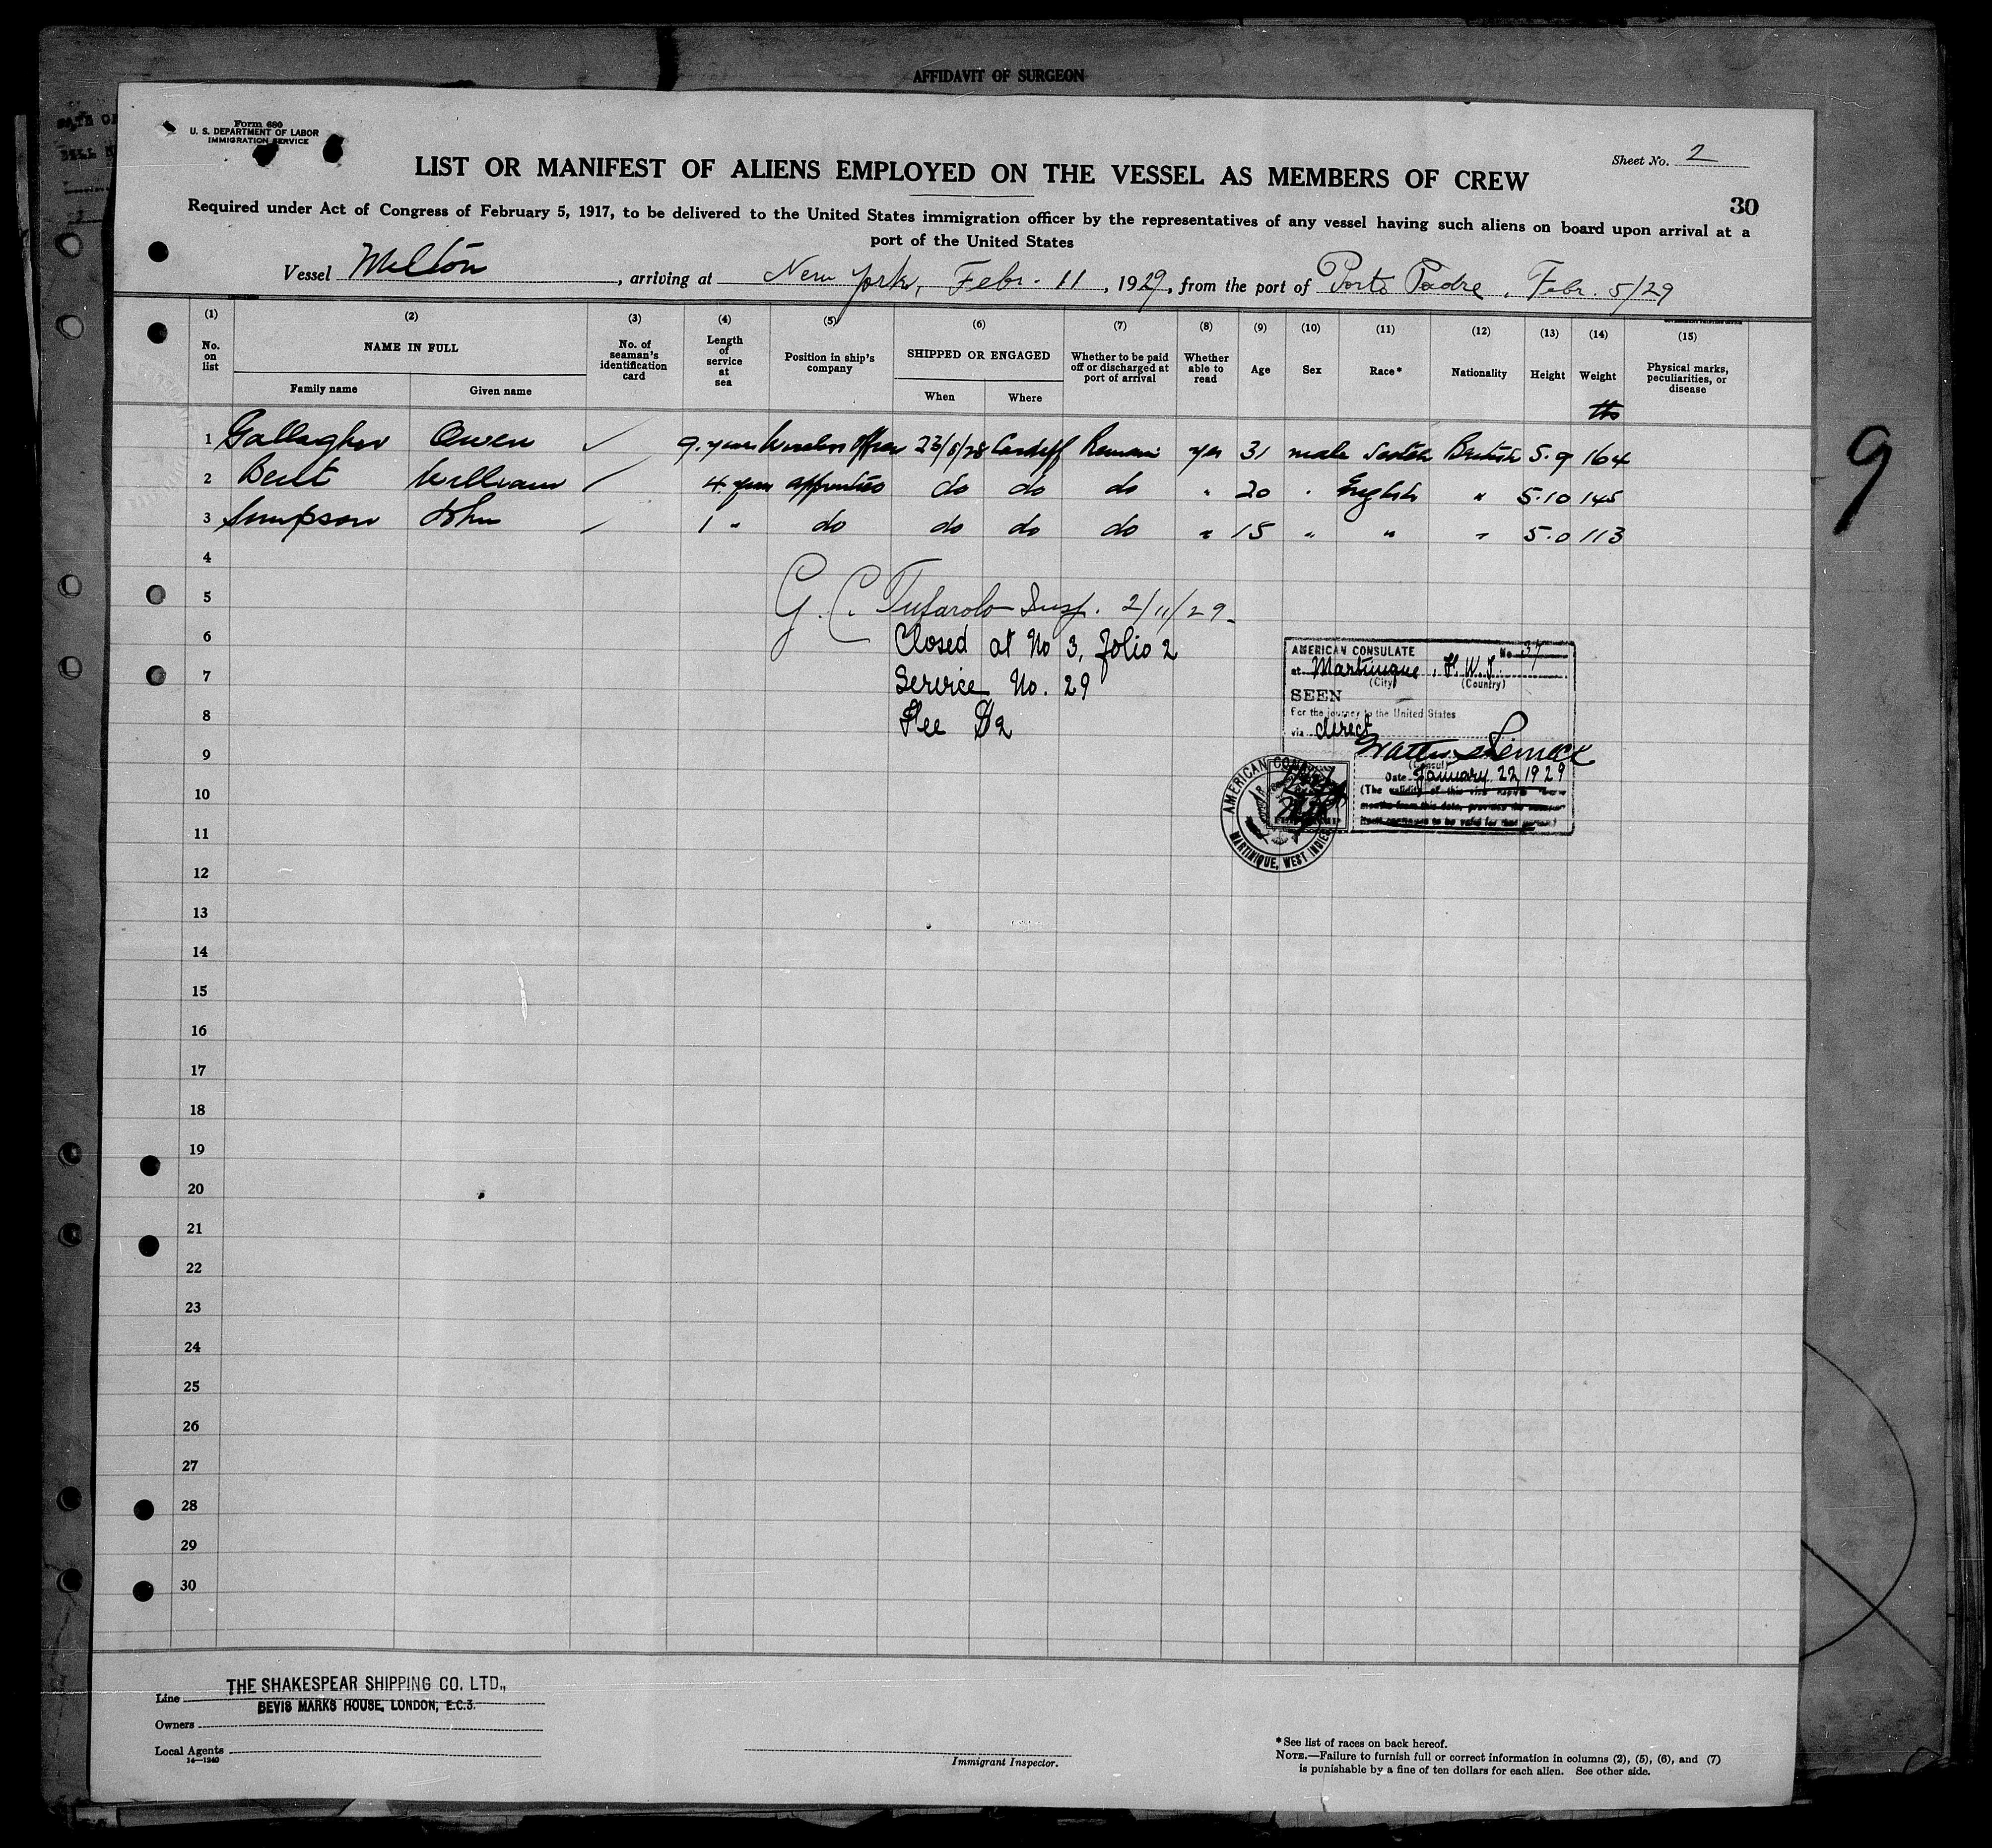 AFFIDAVIT OF SURGEON
Form 680
U. S. DEPARTMENT OF LABOR
IMMIGRATION SERVICE
Sheet No. 2
LIST OR MANIFEST OF ALIENS EMPLOYED ON THE VESSEL AS MEMBERS OF CREW
30
Required under Act of Congress of February 5, 1917, to be delivered to the United States immigration officer by the representatives of any vessel having such aliens on board upon arrival at a
port of the United States
Vessel Milton, arriving at New York, Febr. 11, 1929, from the port of Porto Padre, Febr. 5/29
(1) (2) (3) (4) (5) (6) (7) (8) (9) (10) (11) (12) (13) (14) (15)
No. on list NAME IN FULL No. of seaman's identification card Length of service at sea Position in ship's company SHIPPED OR ENGAGED Whether to be paid off or discharged at port of arrival Whether able to read Age Sex Race* Nationality Height Weight Physical marks, peculiarities, or disease
Family name Given name When Where
1 Gallagher Owen 9 years Wireless Officer 23/8/28 Cardiff Remain yes 31 male Scotch British 5.9 164
2 William 4 years apprentice do do do " 20 " English " 5.10 145
3 Simpson John 1 " do do do do " 15 " " " 5.0 113
4
5 G. C. Insp. 2/11/29
6 Closed at No 3, folio 2
7 Service No. 29
8 Fee $2
9
10
11
12
13
14
15
16
17
18
19
20
21
22
23
24
25
26
27
28
29
30
AMERICAN CONSULATE No. 37
at Martinique, F. W. I.
(City) (Country)
SEEN
For the journey to the United States
via direct
(Consul)
Date January 22, 1929
(The validity of this visa
AMERICAN
MARTINIQUE, WEST INDIES
9
Line THE SHAKESPEAR SHIPPING CO. LTD.,
BEVIS MARKS HOUSE, LONDON, E.C.3.
Owners
Local Agents
14—1240
Immigrant Inspector.
*See list of races on back hereof.
NOTE.—Failure to furnish full or correct information in columns (2), (5), (6), and (7)
is punishable by a fine of ten dollars for each alien. See other side.